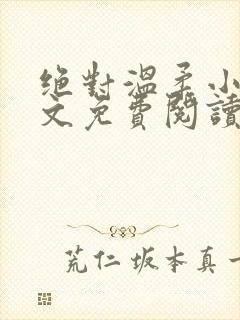 絕對溫柔小
文免費閱讀
荒仁坂本真一